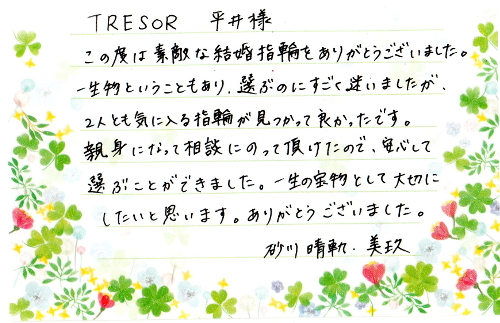 TRESOR 平井様
この度は素敵な結婚指輪をありがとうございました。
一生物ということもあり、選ぶのにすごく迷いましたが、
2人とも気に入る指輪が見つかって良かったです。
親身になって相談にのって頂けたので、安心して
選ぶことができました。一生の宝物として大切に
したいと思います。ありがとうございました。
砂川 晴軌・美玖